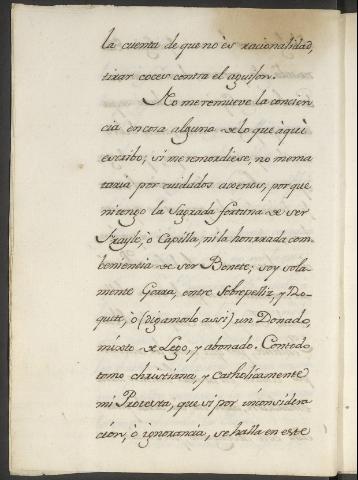 la cuenta de que no ès racionalidad,
tirar coces contra el aguijon.
No me remueve la concien
cia en cosa alguna de lo que àquì
escribo; si me remordiese, no me ma
taria por cuidados agenos, por que
ni tengo la Sagrada fortuna de ser
Frayle, ò Capilla, ni la honrrada com
beniencia de ser Bonete; soy sola
mente Gorra, entre Sobrepelliz, y Ro-
quete, ò (digamoslo assi) un Donado,
mixto de Lego, y abonado. Con todo
tomo christiana, y catholicamente
mi Protesta, que si por inconsidera
ción, ò ignorancia, se halla en este